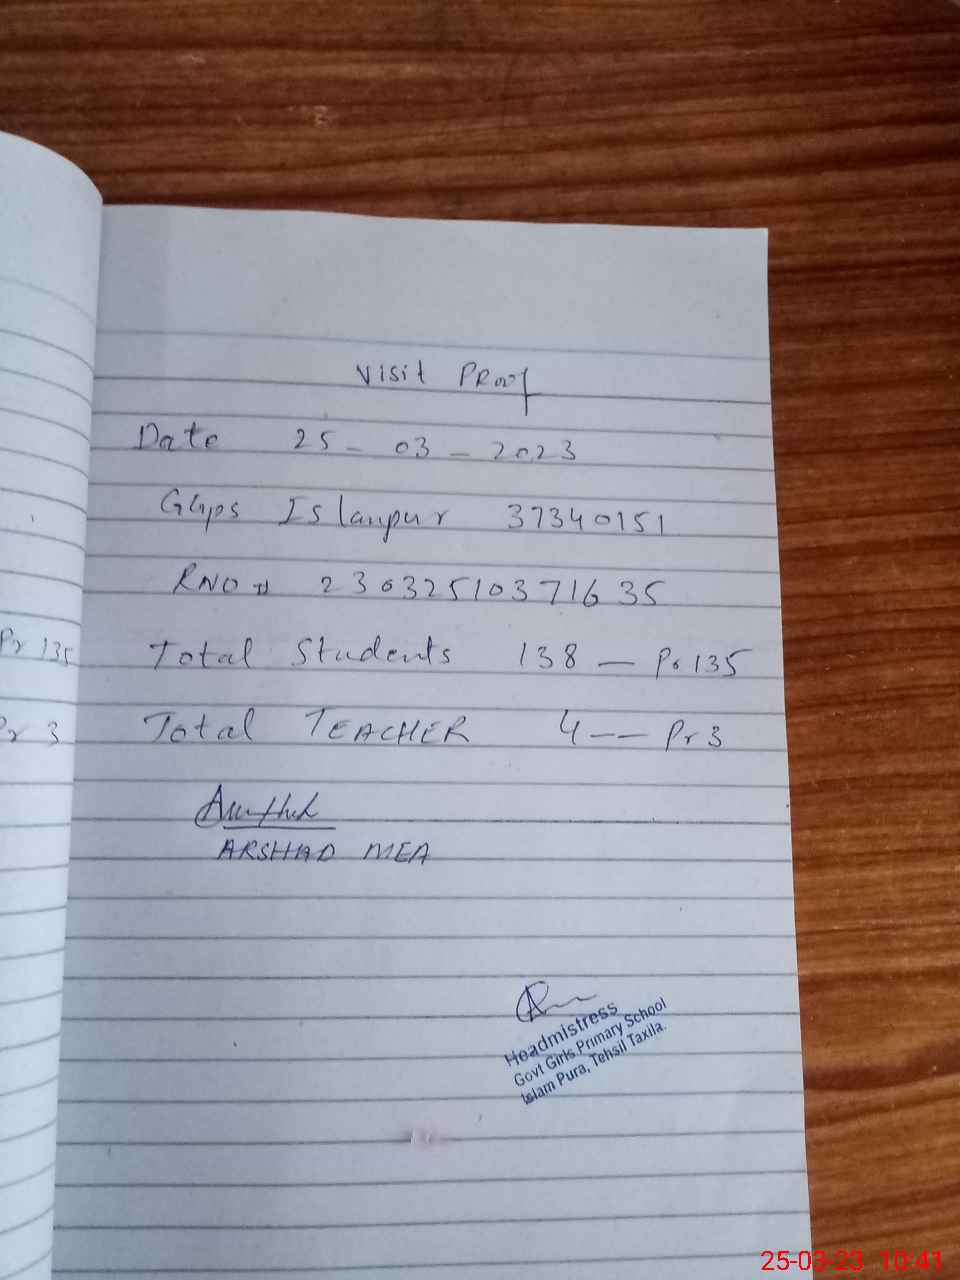 Visit PRoof
Date 25 - 03 - 2023
GGps Islanpur 37340151
RNO # 23032510371635
Pr 135
Total Students 138 — Pr 135
Pr 3
Total TEACHER 4 -- Pr 3
ARSHAD MEA
Headmistress
Govt Girls Primary School
Islam Pura, Tehsil Taxila.
25-03-23 10:41